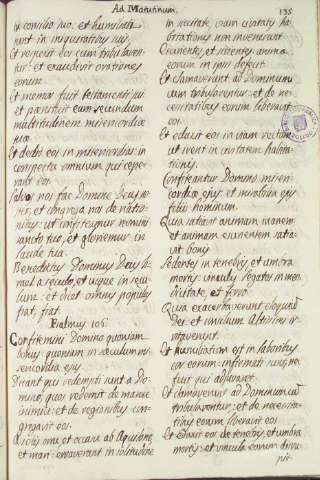 Ad Matutinum.
135
in consilio suo, et humiliati
sunt in iniquitatibus suis
Et vidit eos cum tribularen-
tur: et exaudivit orationes
eorum.
Et memor fuit testamenti sui
et pœnituit eum secundum
multitudinem misericordiæ
suæ.
Et dedit eos in misericordias: in
conspectu omnium qui cepe-
rant eos.
Salvos nos fac Domine Deus no-
ster, et congrega nos de natio-
nibus: ut confiteamur nomini
sancto tuo, et gloriemur in
laude tua.
Benedictus Dominus Deus Is-
rael a sæculo, et usque in sæcu-
lum: et dicet omnis populus
fiat, fiat.
Psalmus 106.
Confitemini Domino quoniam
bonus: quoniam in sæculum mi-
sericordia ejus
Dicant qui redempti sunt a Do-
mino, quos redemit de manu
inimici: et de regionibus con-
gregavit eos.
A solis ortu, et occasu ab Aquilone,
et mari: erraverunt in solitudine
in inaquoso, viam civitatis ha-
bitationis non invenerunt
Esurientes, et sitientes anima
eorum in ipsis defecit
Et clamaverunt ad Dominum
cum tribularentur: et de ne-
cessitatibus eorum liberavit
eos.
Et eduxit eos in viam rectam
ut irent in civitatem habita-
tionis.
Confiteantur Domino miseri-
cordiæ ejus et mirabilia ejus
filiis hominum.
Quia satiavit animam inanem
et animam esurientem satia-
vit bonis
Sedentes in tenebris, et umbra
mortis: vinctos legatos in men-
dicitate, et ferro
Quia exacerbaverunt eloquia
Dei: et consilium Altissimi ir-
ritaverunt.
Et humiliatum est in laboribus
cor eorum: infirmati sunt, nec
fuit qui adjuvaret.
Et clamaverunt ad Dominum cum
tribularentur: et de necessita-
tibus eorum liberavit eos
Et eduxit eos de tenebris, et umbra
mortis: et vincula eorum diru-
pit.